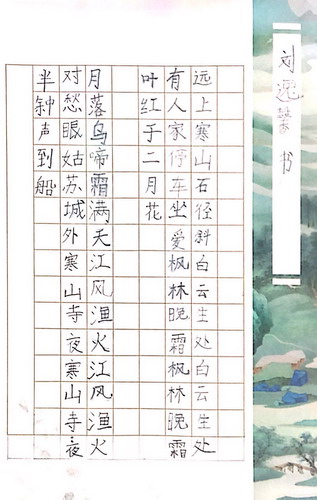 刘逸 书
远上寒山石径斜白云生处白云生处
有人家停车坐爱枫林晚霜枫林晚霜
叶红于二月花
月落乌啼霜满天江风渔火江风渔火
对愁眼姑苏城外寒山寺夜寒山寺夜
半钟声到船